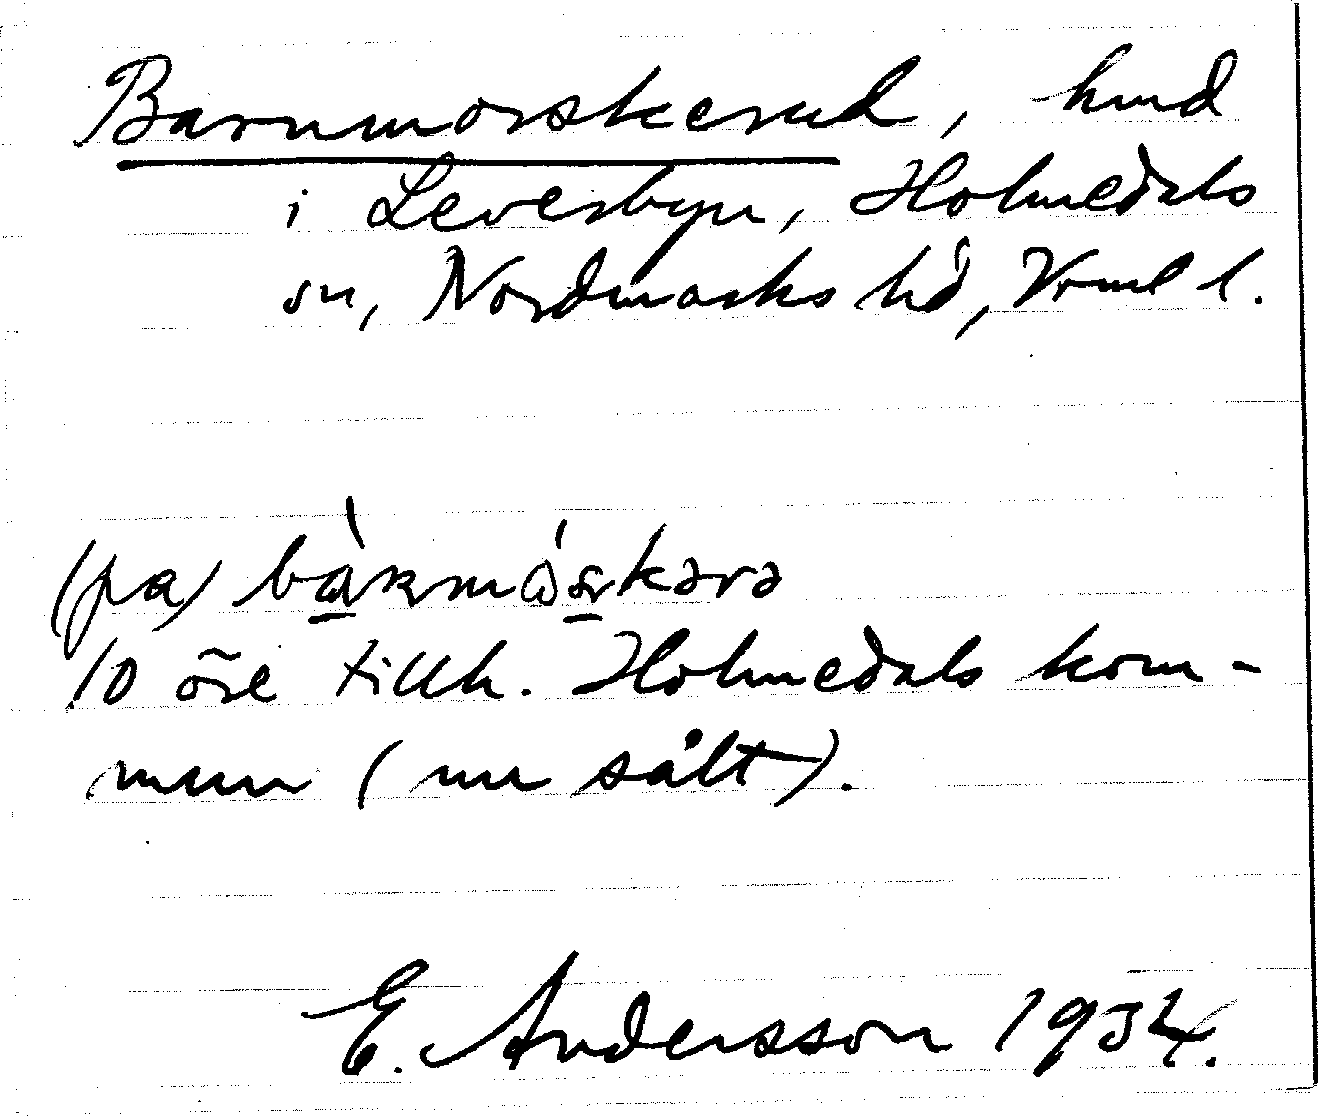 Barnmorskerud, hmd
i Levesbyn, Holmedals
sn, Nordmarks hd, Vrml l.
(pa) bàʀnmå̀skərə
10 öre tillh. Holmedals kom-
mun (nu sålt).
E. Andersson 1934.